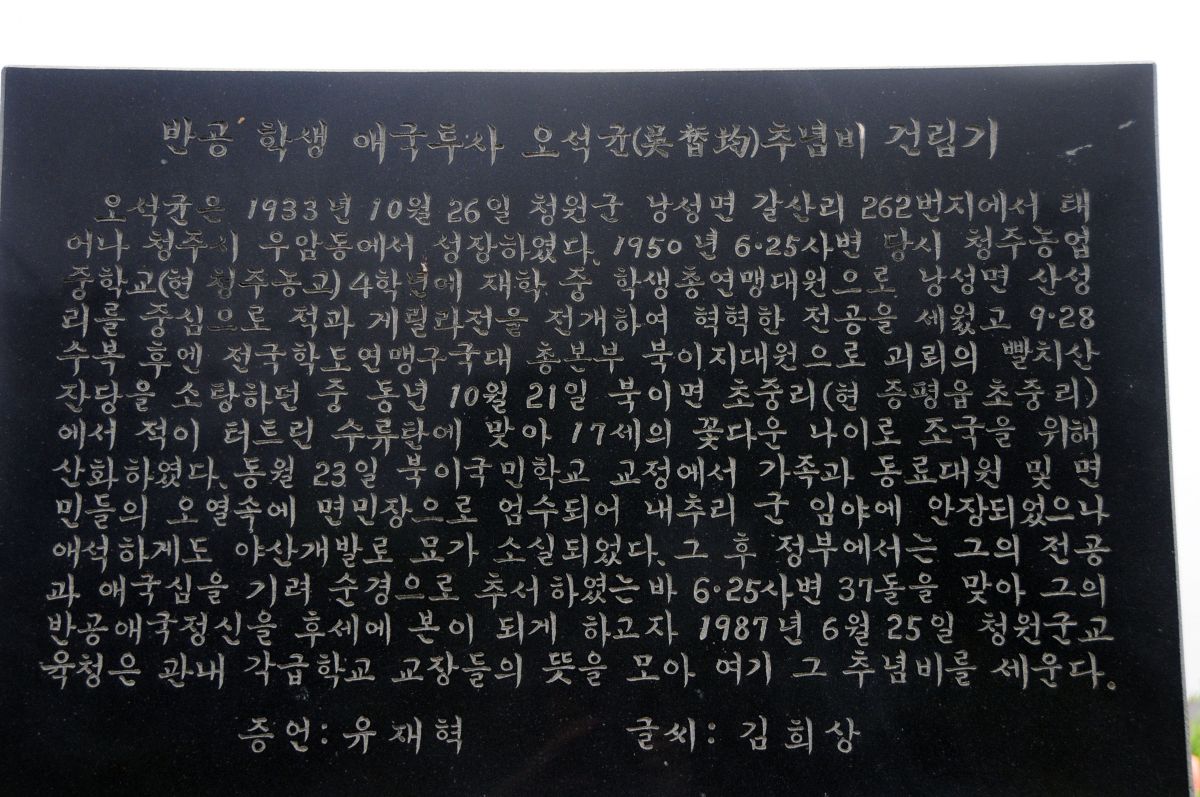 반공 학생 애국투사 오석균(吳晳均)추념비 건립기
오석균은 1933년 10월 26일 청원군 낭성면 갈산리 262번지에서 태
어나 청주시 우암동에서 성장하였다. 1950년 6·25사변 당시 청주농업
중학교(현 청주농고)4학년에 재학 중 학생총연맹대원으로 낭성면 산성
리를 중심으로 적과 게릴라전을 전개하여 혁혁한 전공을 세웠고 9·28
수복 후엔 전국학도연맹구국대 총본부 북이지대원으로 괴뢰의 빨치산
잔당을 소탕하던 중 동년 10월 21일 북이면 초중리(현 증평읍 초중리)
에서 적이 터트린 수류탄에 맞아 17세의 꽃다운 나이로 조국을 위해
산화하였다. 동월 23일 북이국민학교 교정에서 가족과 동료대원 및 면
민들의 오열속에 면민장으로 엄수되어 내추리 군 임야에 안장되었으나
애석하게도 야산개발로 묘가 소실되었다. 그 후 정부에서는 그의 전공
과 애국심을 기려 순경으로 추서하였는바 6·25사변 37돌을 맞아 그의
반공애국정신을 후세에 본이 되게 하고자 1987년 6월 25일 청원군교
육청은 관내 각급학교 교장들의 뜻을 모아 여기 그 추념비를 세운다.
증언: 유재혁 글씨: 김희상